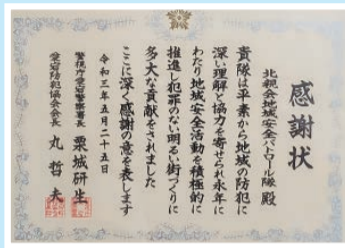 感謝状
北親会地域安全パトロール隊 殿
貴隊は平素から地域の防犯に
深い理解と協力を寄せられ永年に
わたり地域安全活動を積極的に
推進し犯罪のない明るい街づくりに
多大な貢献をされました
ここに深く感謝の意を表します
令和三年五月二十五日
警視庁愛宕警察署長 栗城研生
愛宕防犯協会会長 丸哲夫